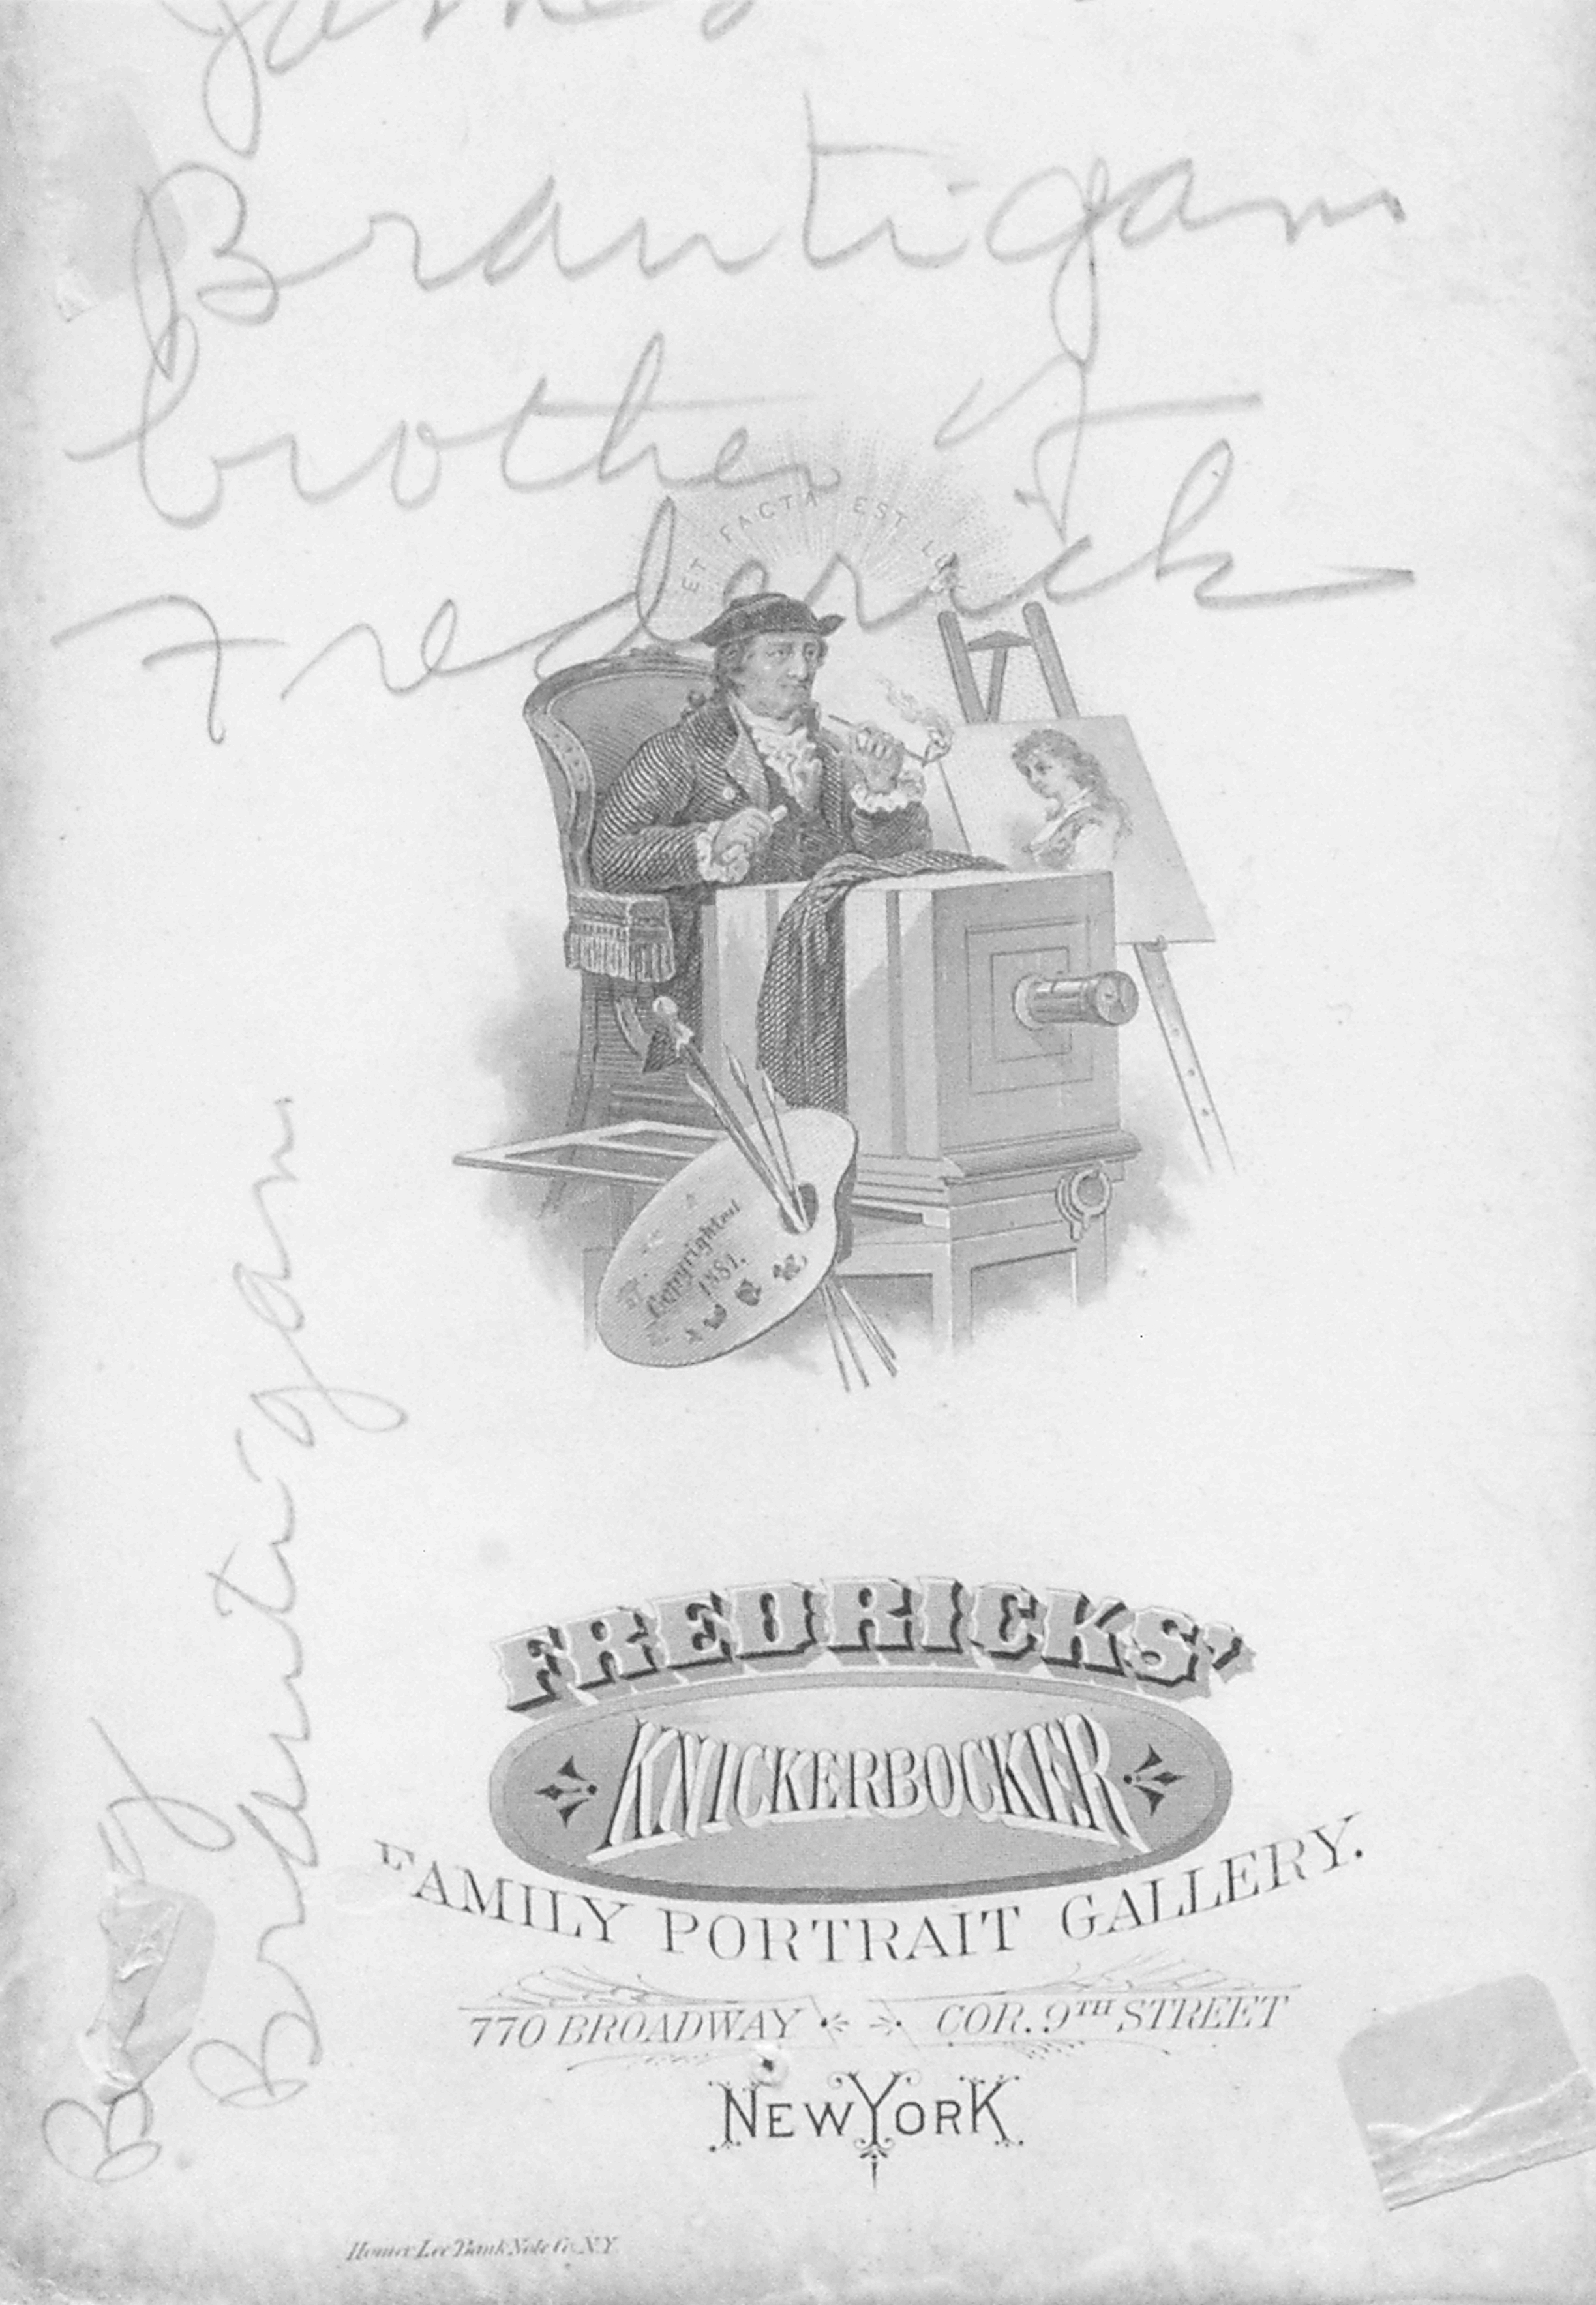 James
Brantigam
brother of
Frederick
ET FACTA EST LUX
Copyrighted
1881.
Brantigam
FREDRICKS'
KNICKERBOCKER
FAMILY PORTRAIT GALLERY.
770 BROADWAY COR. 9TH STREET
NEW YORK
Homer Lee Bank Note Co. N.Y.